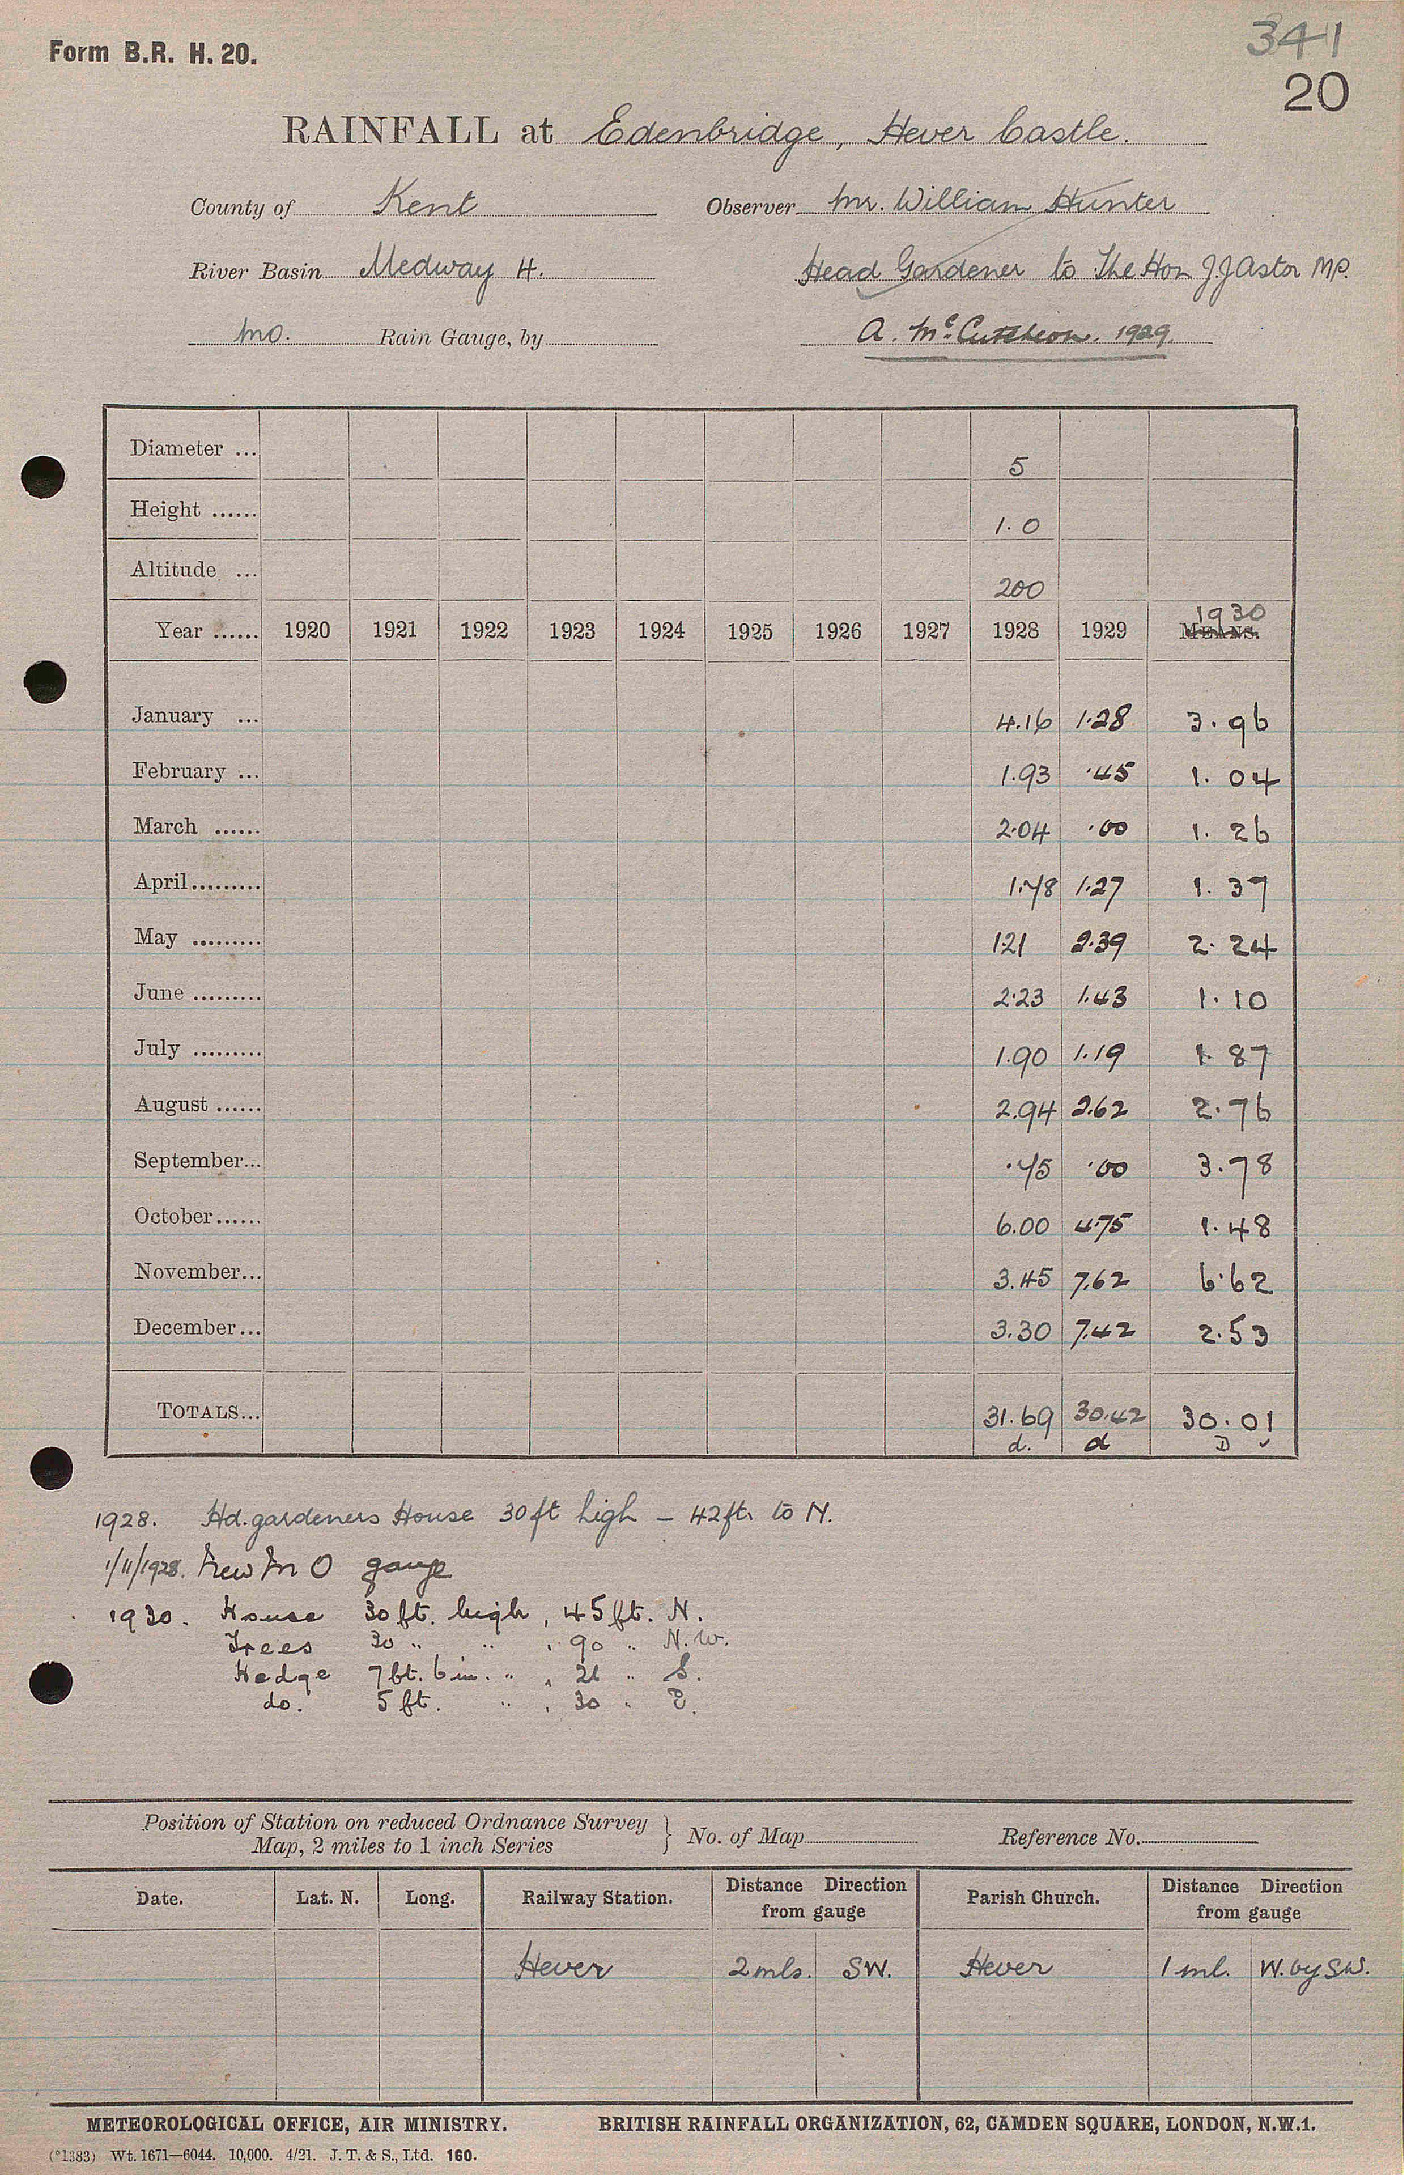 Form B.R. H. 20.
341
20
RAINFALL at Edenbridge, Hever Castle.
County of Kent Observer Mr. William Hunter
River Basin Medway H. Head Gardener to The Hon J J Astor MP.
MO. Rain Gauge, by A. McCutcheon. 1929.
Diameter ... 5
Height ...... 1.0
Altitude ... 200
1930
Year ...... 1920 1921 1922 1923 1924 1925 1926 1927 1928 1929 MEANS.
January ... 4.16 1.28 3.96
February ... 1.93 .45 1.04
March ...... 2.04 .00 1.26
April......... 1.78 1.27 1.37
May ......... 1.21 2.39 2.24
June ......... 2.23 1.43 1.10
July ......... 1.90 1.19 1.87
August ...... 2.94 2.62 2.76
September... .75 .00 3.78
October...... 6.00 4.75 1.48
November... 3.45 7.62 6.62
December... 3.30 7.42 2.53
TOTALS... 31.69 30.42 30.01
d. d D ✓
1928. Hd. gardeners House 30ft high – 42ft. to N.
1/11/1928. New M O gauge
1930. House 30 ft. high, 45 ft. N.
Trees 30 " " , 90 " N.W.
Hedge 7 ft. 6 in. " , 21 " S.
do. 5 ft. " , 30 " E.
Position of Station on reduced Ordnance Survey
Map, 2 miles to 1 inch Series } No. of Map Reference No.
Date. Lat. N. Long. Railway Station. Distance Direction from gauge Parish Church. Distance Direction from gauge
Hever 2 mls. SW. Hever 1 ml. W. by SW.
METEOROLOGICAL OFFICE, AIR MINISTRY. BRITISH RAINFALL ORGANIZATION, 62, CAMDEN SQUARE, LONDON, N.W.1.
(*1383) Wt. 1671—6044. 10,000. 4/21. J. T. & S., Ltd. 160.